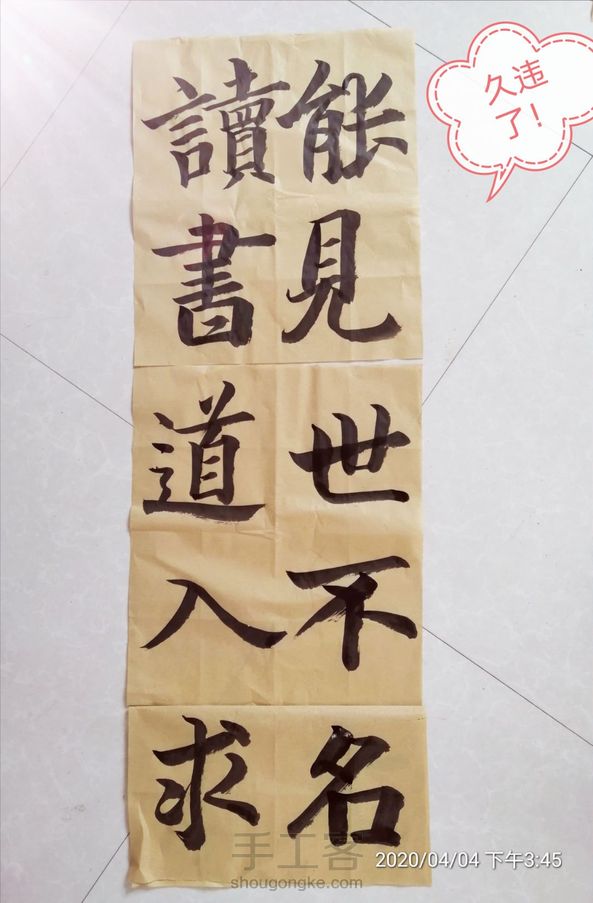 能見世不名
讀書道入求
久违
了!
手工客
2020/04/04 下午3:45
shougongke.com